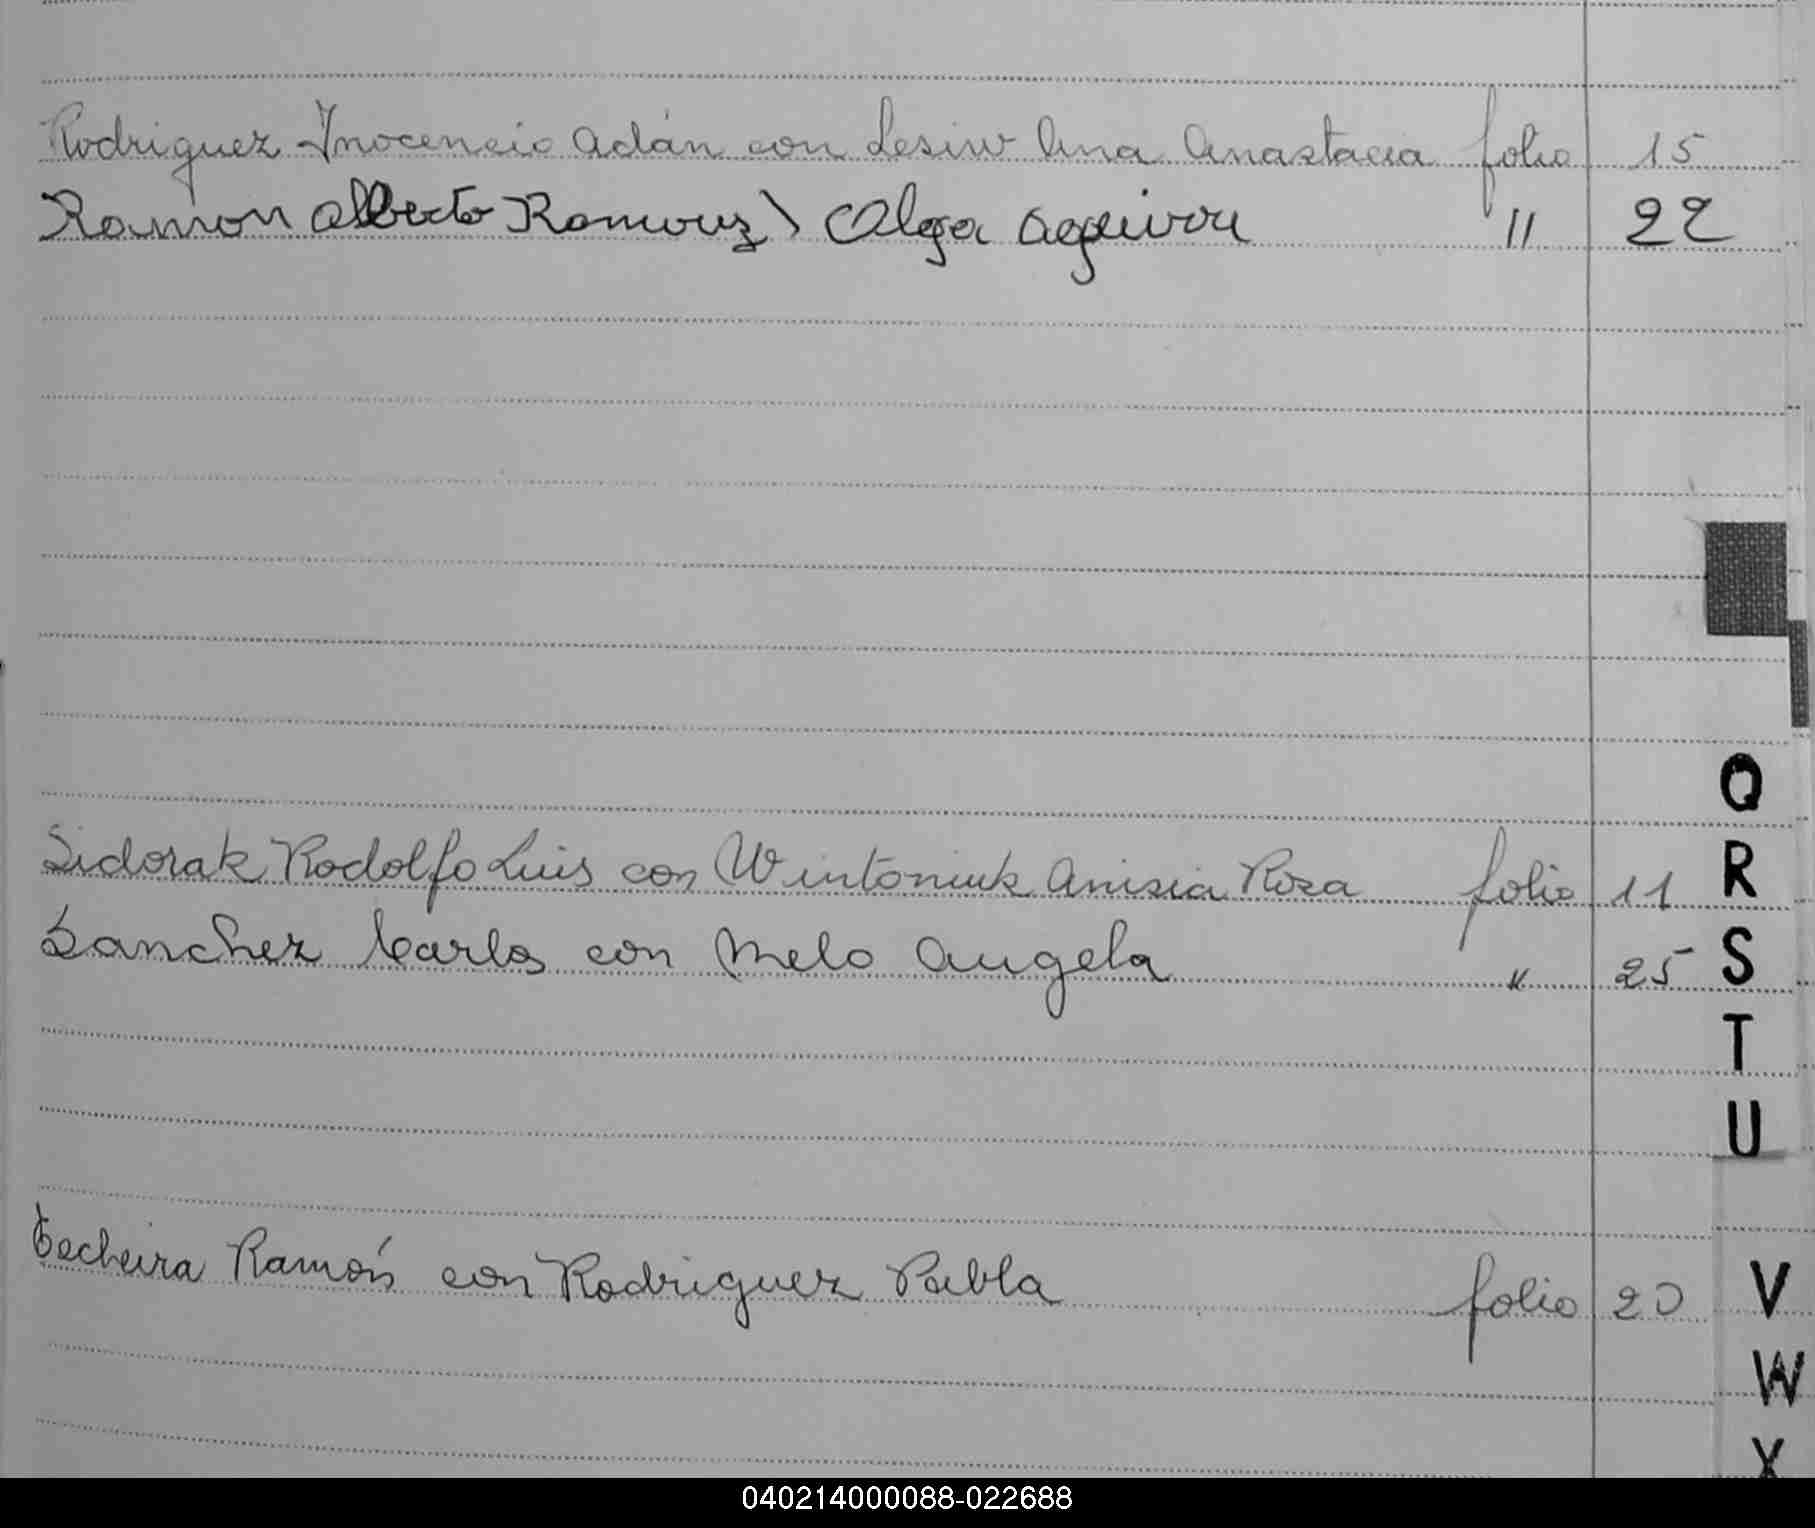 Rodriguez Inocencio Adán con Lesiw Ana Anastacia folio 15
Ramon Alberto Ramirez) Olga Aguirre " 22
Q
R
Sidorak Rodolfo Luis con Wintoniuk Anisia Rosa folio 11
S
Sanchez Carlos con Melo Angela " 25
T
U
Techeira Ramón con Rodriguez Pabla folio 20
V
W
X
040214000088-022688